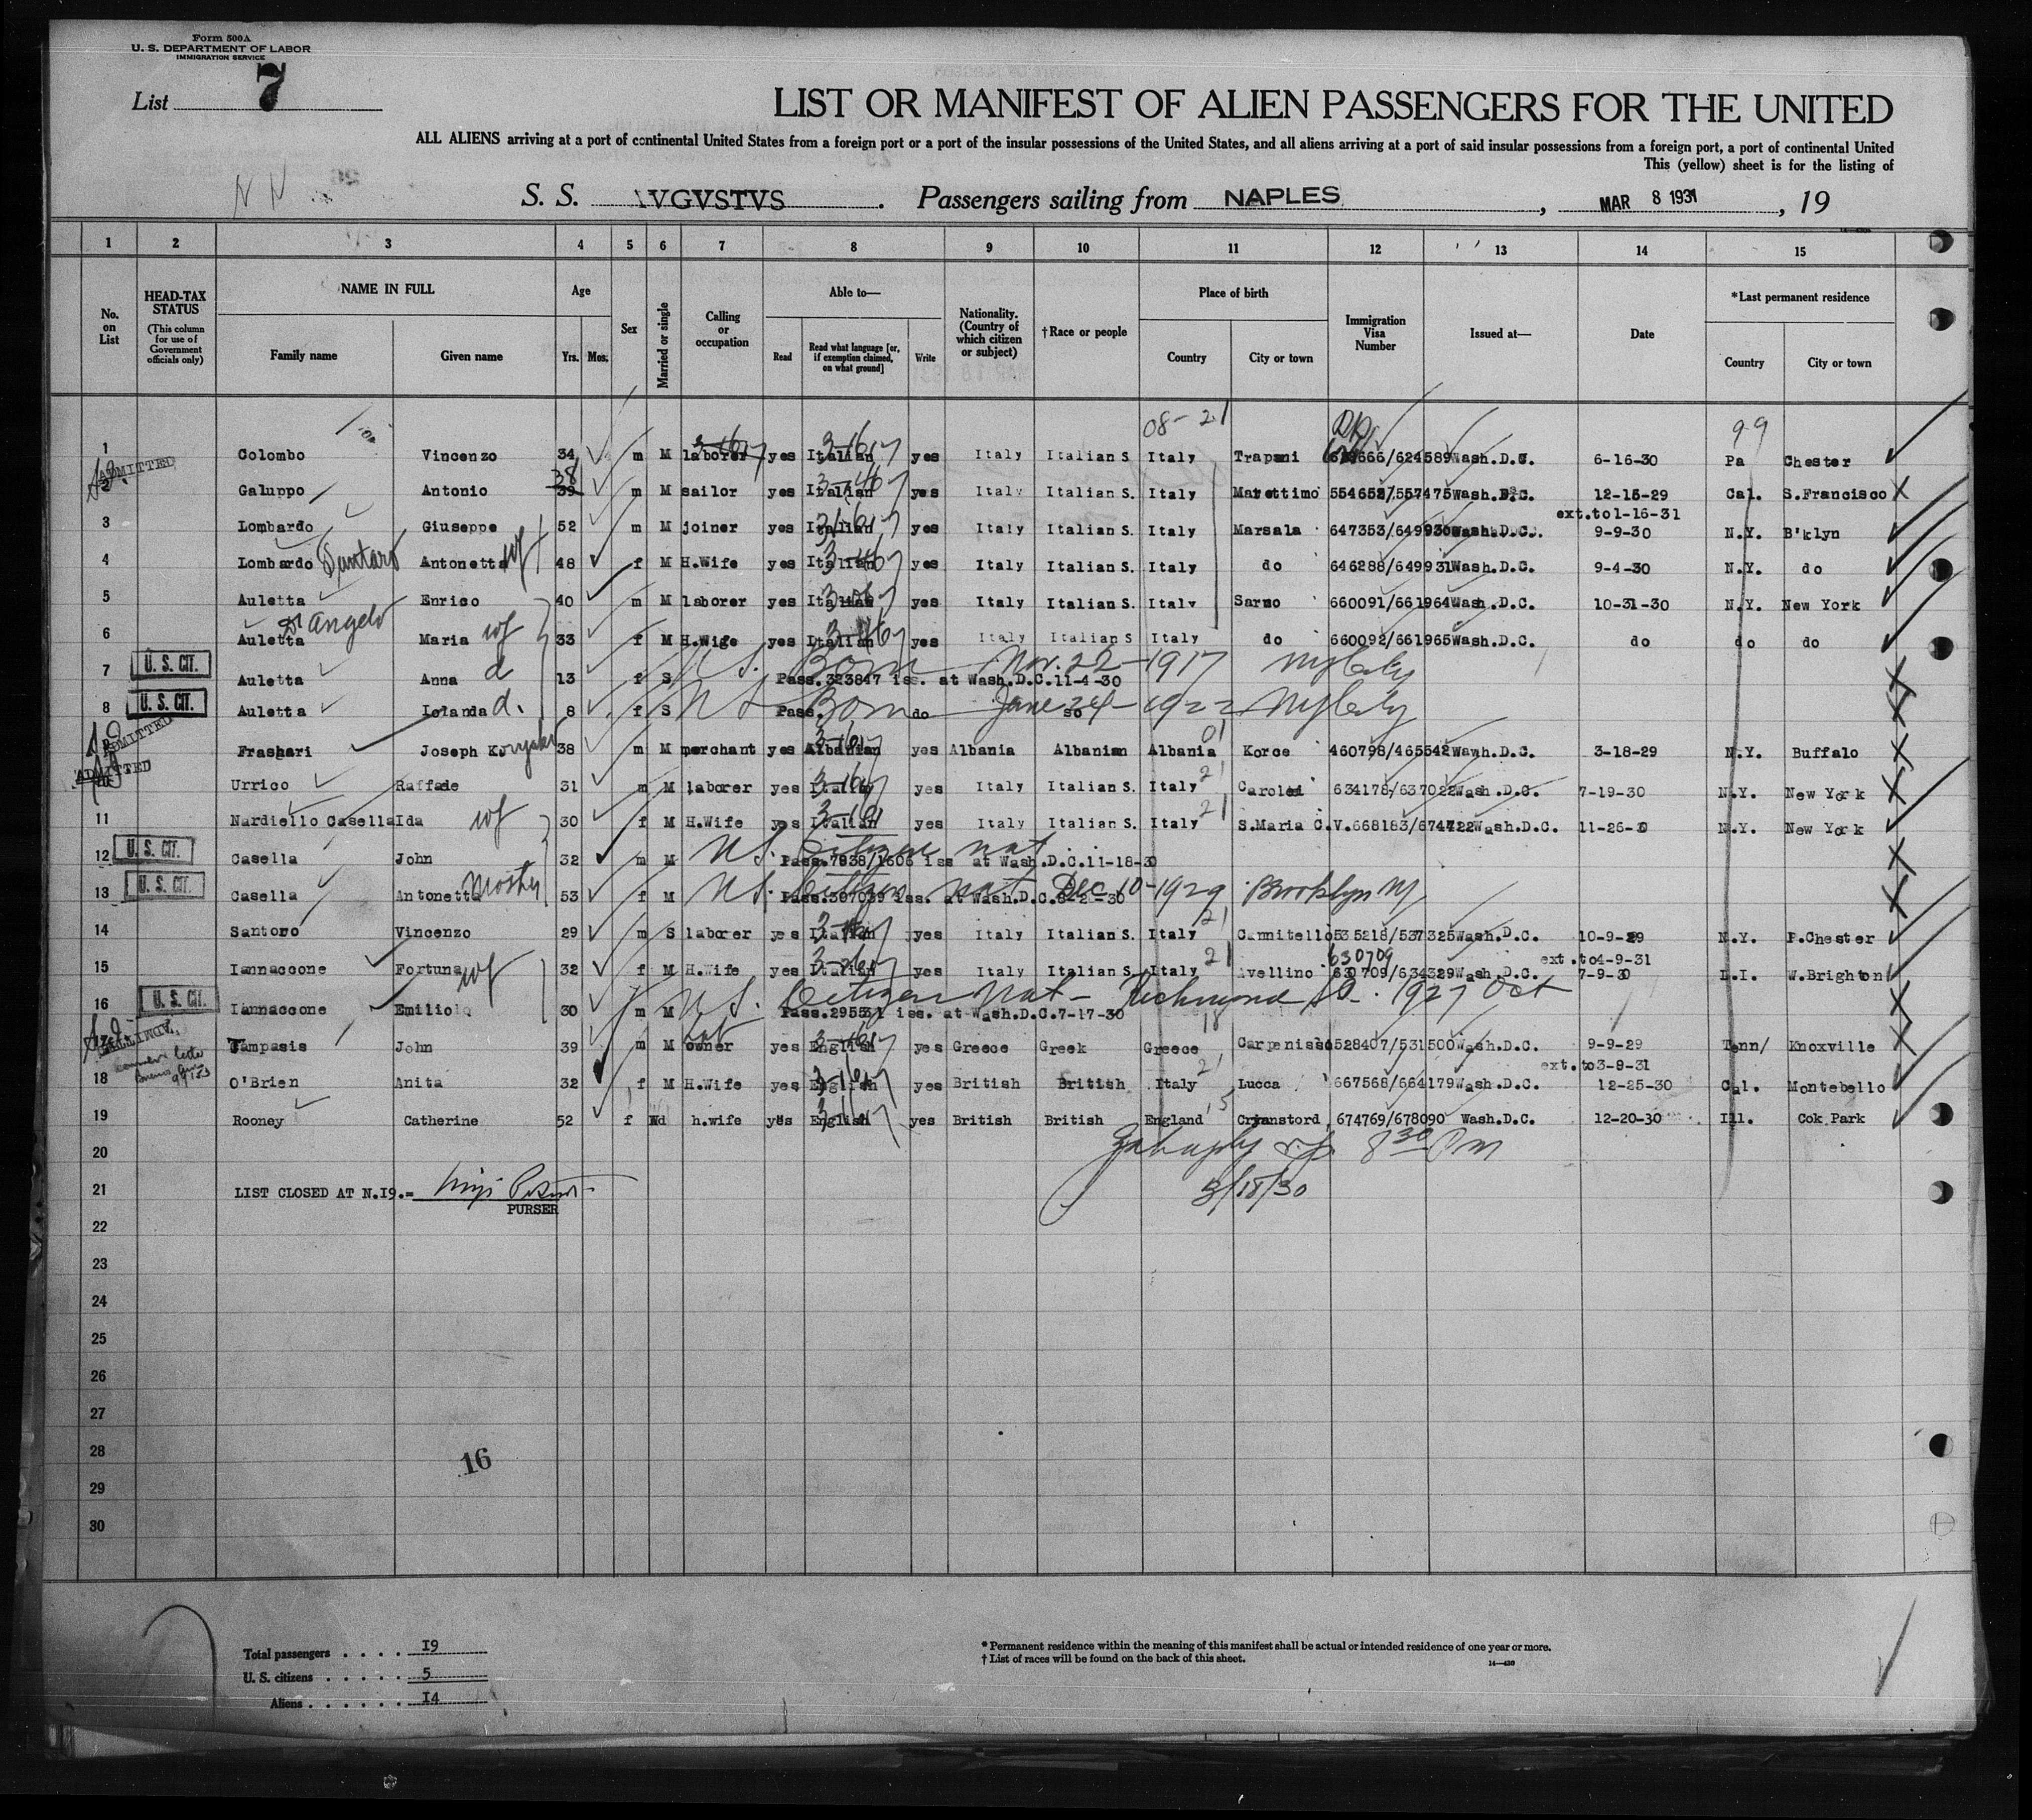 Form 500A
U. S. DEPARTMENT OF LABOR
IMMIGRATION SERVICE
List 7
LIST OR MANIFEST OF ALIEN PASSENGERS FOR THE UNITED
ALL ALIENS arriving at a port of continental United States from a foreign port or a port of the insular possessions of the United States, and all aliens arriving at a port of said insular possessions from a foreign port, a port of continental United
This (yellow) sheet is for the listing of
S. S. AVGVSTVS . Passengers sailing from NAPLES , MAR 8 1931 , 19
1 2 3 4 5 6 7 8 9 10 11 12 13 14 15
No. on List
HEAD-TAX STATUS (This column for use of Government officials only)
NAME IN FULL
Family name Given name
Age
Yrs. Mos.
Sex
Married or single
Calling or occupation
Able to—
Read Read what language [or, if exemption claimed, on what ground] Write
Nationality. (Country of which citizen or subject)
† Race or people
Place of birth
Country City or town
Immigration Visa Number
Issued at—
Date
*Last permanent residence
Country City or town
08-21 99
1 Colombo Vincenzo 34 m M laborer yes Italian yes Italy Italian S Italy Trapani /624589 Wash.D.C. 6-16-30 Pa Chester
ADMITTED
38
2 Galuppo Antonio 39 m M sailor yes Italian yes Italy Italian S. Italy Marettimo 554652/557475 Wash.D.C. 12-15-29 Cal. S.Francisco
ext.to1-16-31
3 Lombardo Giuseppe 52 m M joiner yes Italian yes Italy Italian S. Italy Marsala 647353/649930 Wash.D.C. 9-9-30 N.Y. B'klyn
4 Lombardo Santaro Antonetta wf 48 f M H.Wife yes Italian yes Italy Italian S. Italy do 646288/649931 Wash.D.C. 9-4-30 N.Y. do
5 Auletta Enrico 40 m M laborer yes Italian yes Italy Italian S. Italy Sarno 660091/661964 Wash.D.C. 10-31-30 N.Y. New York
D'Angelo
6 Auletta Maria wf 33 f M H.Wige yes Italian yes Italy Italian S Italy do 660092/661965 Wash.D.C. do do do
7 U. S. CIT. Auletta Anna d 13 f S U.S. Born Nov. 22-1917 NY City
Pass.323847 iss. at Wash.D.C.11-4-30
8 U. S. CIT. Auletta Iolanda d. 8 f S US Born June 24-1922 NY City
Pass. do so
ADMITTED
9 Frashari Joseph K 38 m M merchant yes Albanian yes Albania Albanian Albania Korce 460798/465542 Wash.D.C. 3-18-29 N.Y. Buffalo
ADMITTED
Urrico Raffaele 31 m M laborer yes Italian yes Italy Italian S. Italy Carolei 634178/637022 Wash.D.C. 7-19-30 N.Y. New York
11 Nardiello Casella Ida wf 30 f M H.Wife yes Italian yes Italy Italian S. Italy S.Maria C.V. 668183/674422 Wash.D.C. 11-26-30 N.Y. New York
12 U. S. CIT. Casella John 32 m M U.S. Citizen nat
Pass.7938/1606 iss at Wash.D.C.11-18-30
13 U. S. CIT. Casella Antonetta Mother 53 f M U.S. Citizen nat Dec 10-1929 Brooklyn NY
Pass.307039 iss. at Wash.D.C.
14 Santoro Vincenzo 29 m S laborer yes Italian yes Italy Italian S. Italy Cannitello 535218/537325 Wash.D.C. 10-9-29 N.Y. P.Chester
630709 ext.to4-9-31
15 Iannaccone Fortuna wf 32 f M H.Wife yes Italian yes Italy Italian S. Italy Avellino 630709/634329 Wash.D.C. 7-9-30 L.I. W.Brighton
16 U. S. CIT. Iannaccone Emilio 30 m M U.S. Citizen Nat- Richmond Co. 1927 Oct
Pass.295531 iss. at Wash.D.C.7-17-30
Tampasis John 39 m M owner yes English yes Greece Greek Greece Carpenissi 528407/531500 Wash.D.C. 9-9-29 Tenn/ Knoxville
ext.to3-9-31
18 O'Brien Anita 32 f M H.Wife yes English yes British British Italy Lucca 667568/664179 Wash.D.C. 12-25-30 Cal. Montebello
19 Rooney Catherine 52 f Wd h.wife yes English yes British British England 674769/678090 Wash.D.C. 12-20-30 Ill. Cok Park
20 8 30 PM
21 LIST CLOSED AT N.19.= 3/18/30
PURSER
22
23
24
25
26
27
28
16
29
30
Total passengers . . . . 19
U. S. citizens . . . . . 5
Aliens . . . . . . 14
* Permanent residence within the meaning of this manifest shall be actual or intended residence of one year or more.
† List of races will be found on the back of this sheet.
14—430